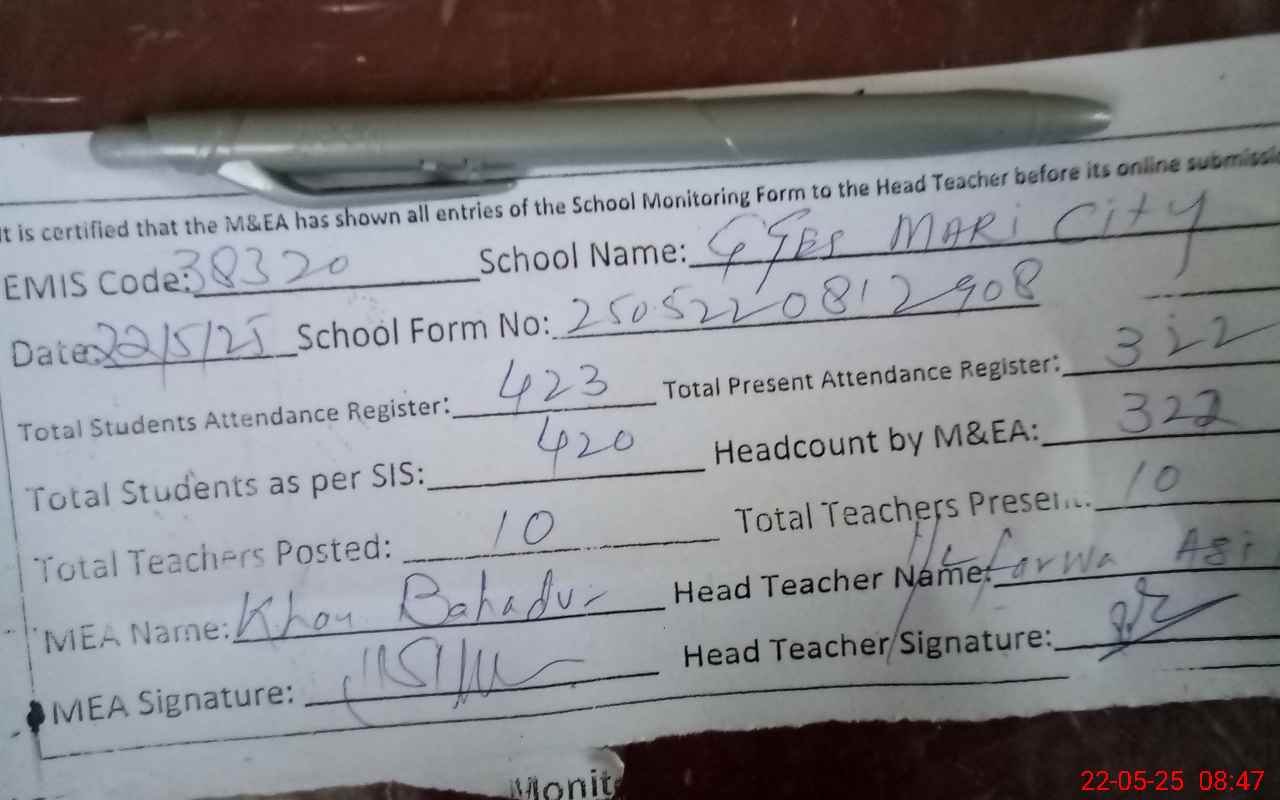 It is certified that the M&EA has shown all entries of the School Monitoring Form to the Head Teacher before its online submissi
EMIS Code: 38320 School Name: GGES MARI City
Date: 22/5/25 School Form No: 2505220812908
Total Students Attendance Register: 423 Total Present Attendance Register: 322
Total Students as per SIS: 420 Headcount by M&EA: 322
Total Teachers Posted: 10 Total Teachers Present: 10
MEA Name: Khan Bahadur Head Teacher Name:
MEA Signature: Head Teacher Signature:
Monit
22-05-25 08:47